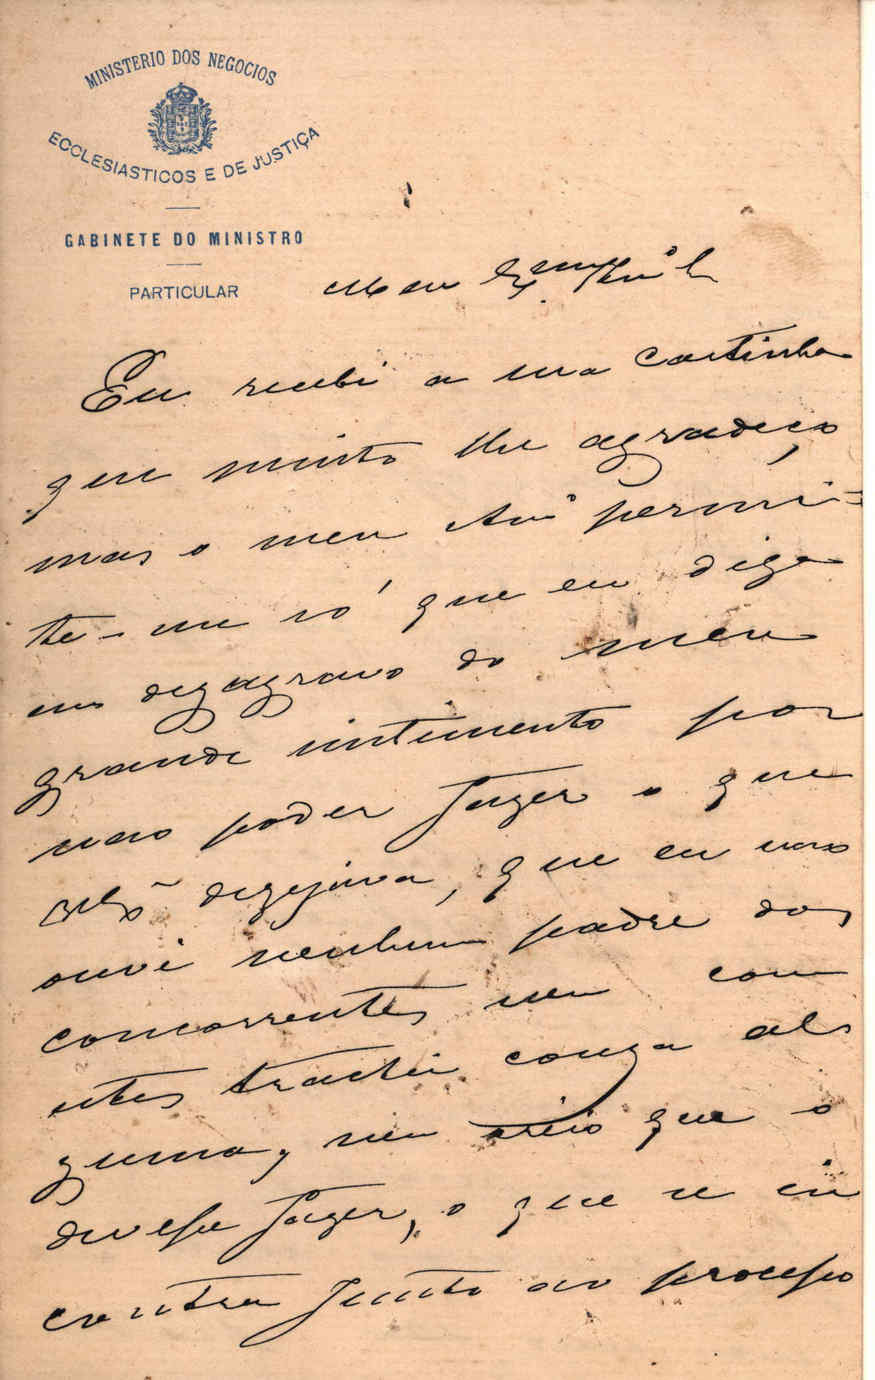 MINISTERIO DOS NEGOCIOS
ECCLESIASTICOS E DE JUSTIÇA
GABINETE DO MINISTRO
PARTICULAR
Meu Exmo Amº
Eu recebi a sua cartinha
que muito lhe agradeço
mas o meu Amº permi-
te-me só que eu diga
em dezagravo do meu
grande sintimento por
nao poder fazer o que
dezejava, que eu nao
ouvi nenhum padre dos
concorrentes nem com
estes tractei couza al
guma, nem creio que o
devesse fazer, o que se en
contra junto ao processo